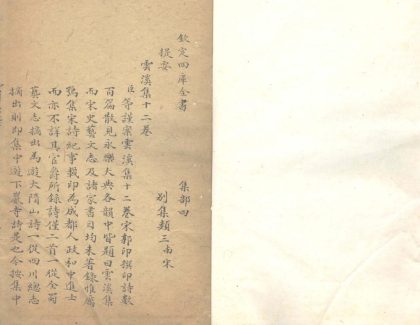 欽定四庫全書
集部四
提要
別集類三南宋
雲溪集十二卷
臣等謹案雲溪集十二卷宋郭印撰印詩數
百篇散見永樂大典各韻中皆題曰雲溪集
而宋史藝文志及諸家書目均未著錄惟厲
鶚集宋詩紀事載印為成都人政和中進士
而亦不詳其官爵所錄詩僅二首一從全蜀
藝文志摘出為遊大隋山詩一從四川總志
摘出則即集中遊下巖寺詩是也今按集中